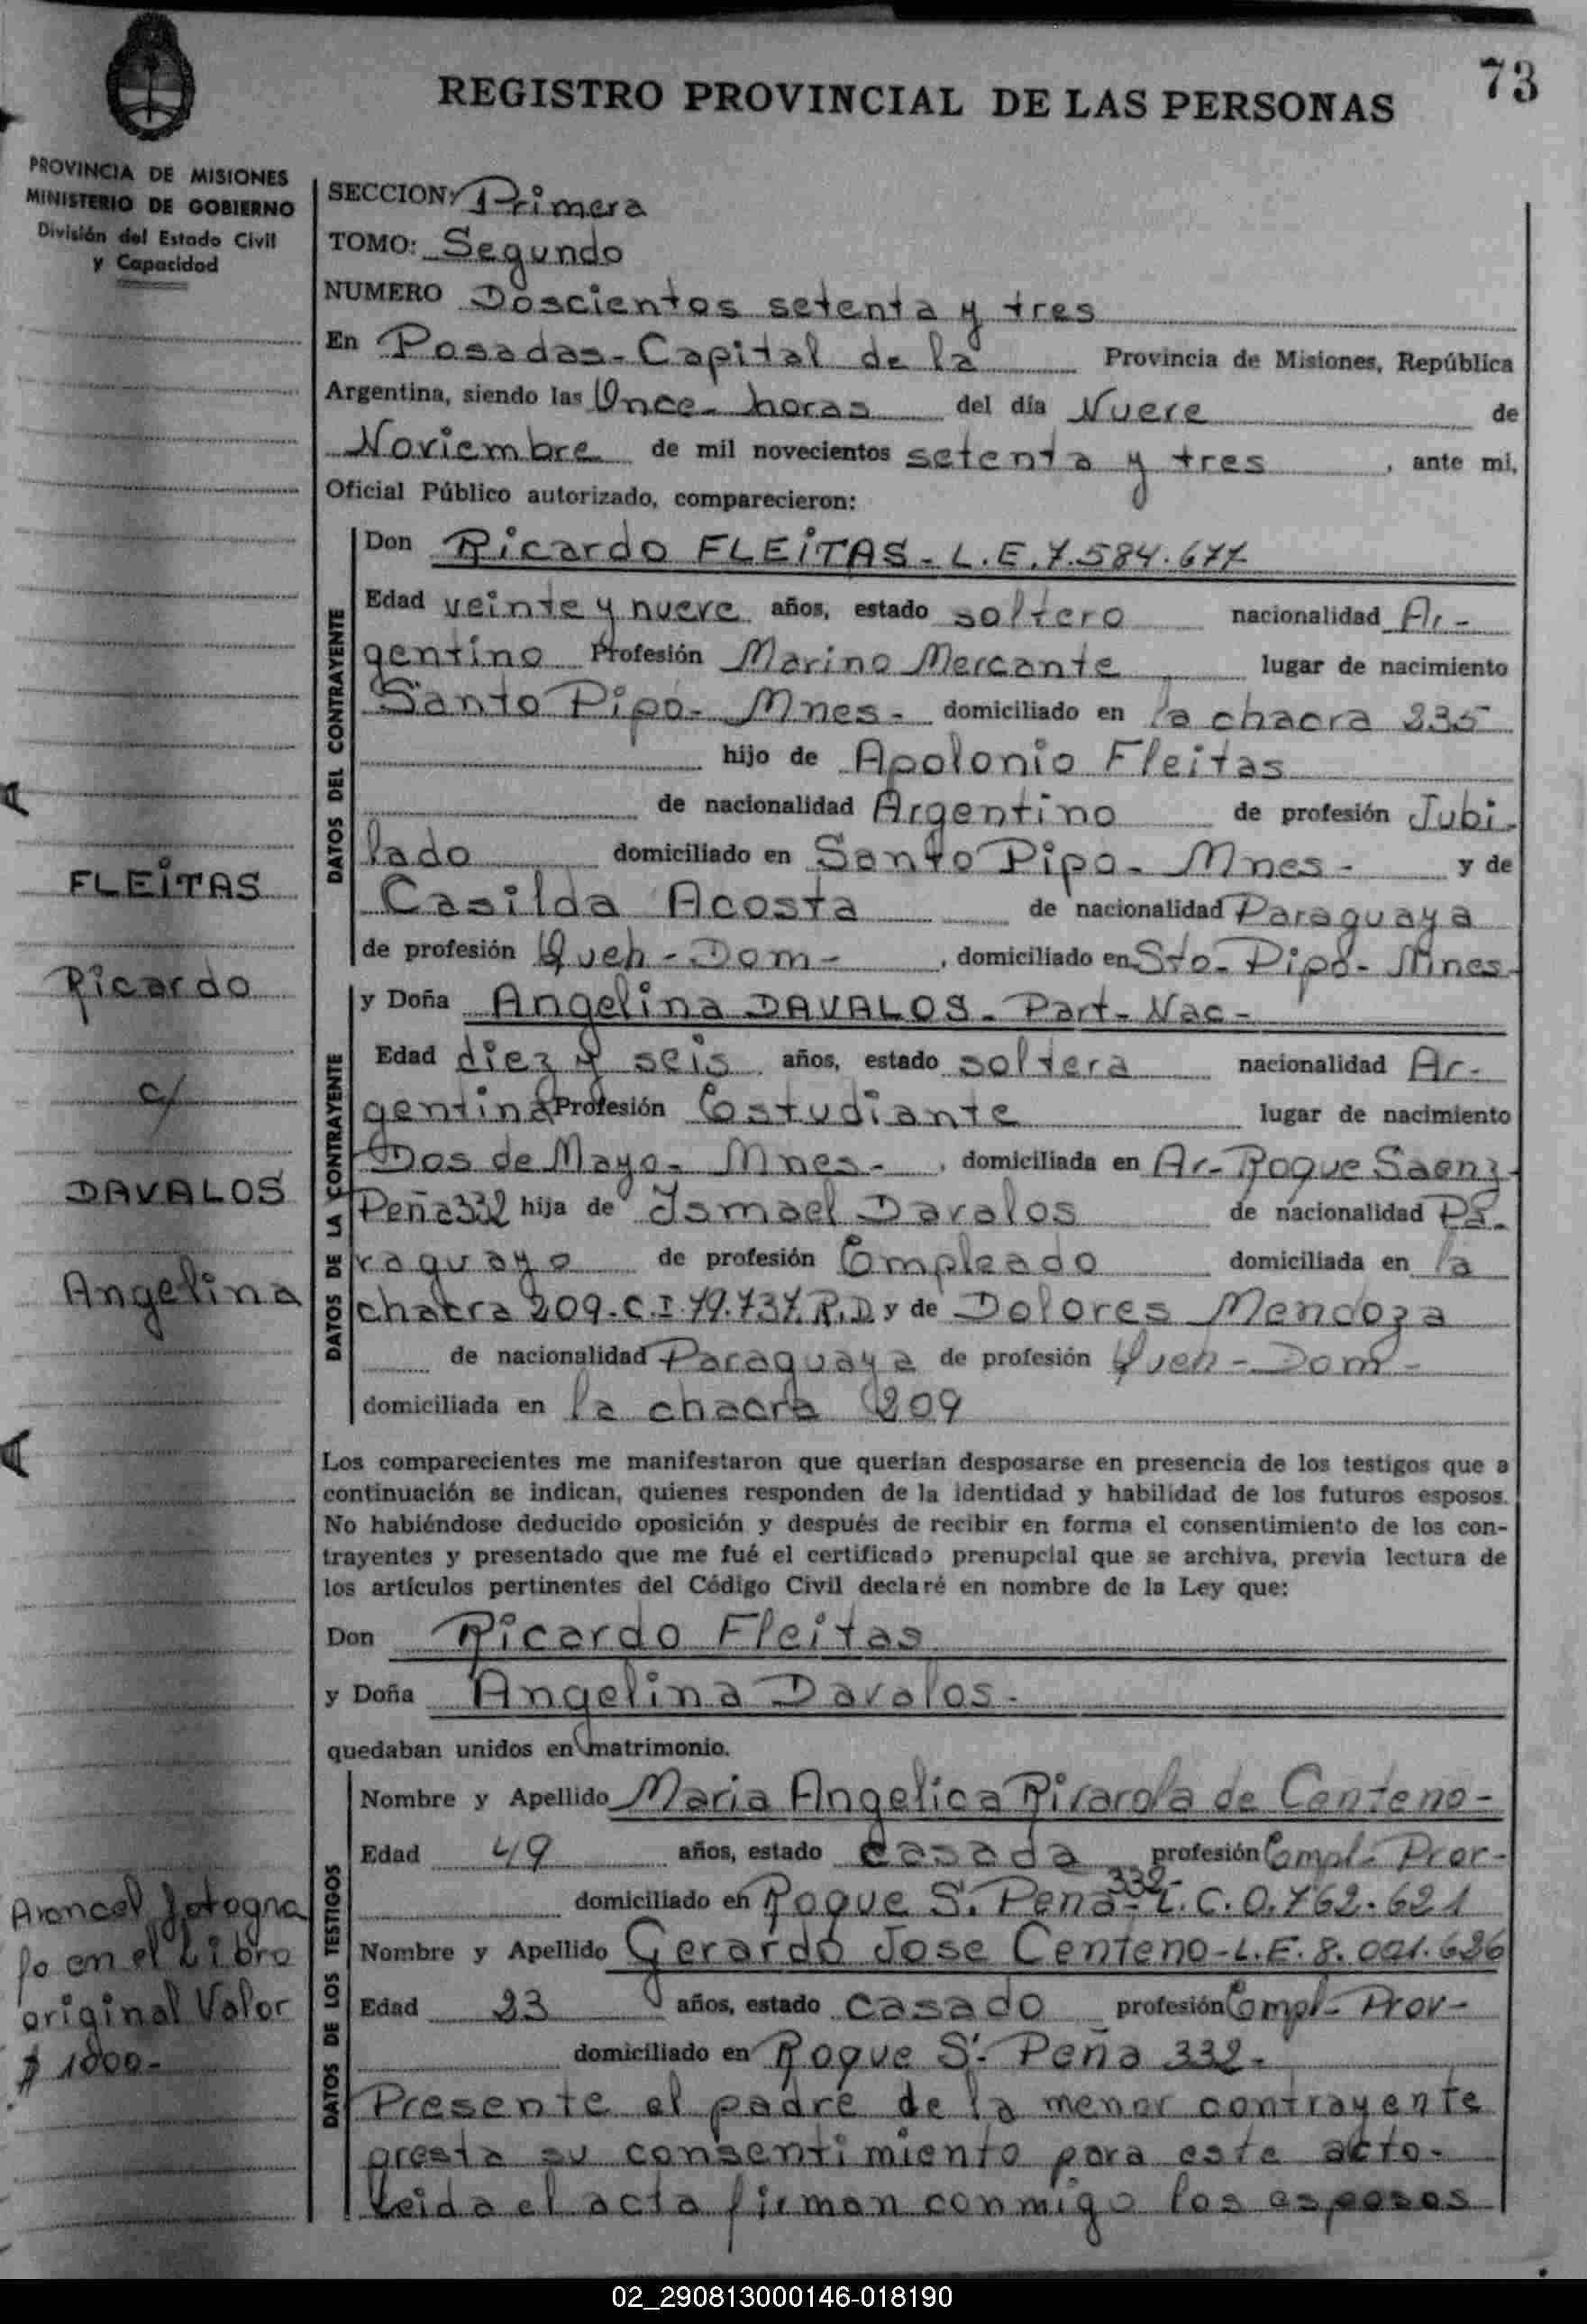 73
REGISTRO PROVINCIAL DE LAS PERSONAS
PROVINCIA DE MISIONES
MINISTERIO DE GOBIERNO
División del Estado Civil
y Capacidad
SECCION: Primera
TOMO: Segundo
NUMERO Doscientos setenta y tres
En Posadas - Capital de la Provincia de Misiones, República
Argentina, siendo las Once - horas del día Nueve de
Noviembre de mil novecientos setenta y tres, ante mi,
Oficial Público autorizado, comparecieron:
DATOS DEL CONTRAYENTE
Don Ricardo FLEITAS - L.E. 7.584.677
Edad veinte y nueve años, estado soltero nacionalidad Ar-
gentino Profesión Marino Mercante lugar de nacimiento
Santo Pipó - Mnes - domiciliado en la chacra 235
hijo de Apolonio Fleitas
de nacionalidad Argentino de profesión Jubi-
lado domiciliado en Santo Pipo - Mnes - y de
Casilda Acosta de nacionalidad Paraguaya
de profesión Queh - Dom -, domiciliado en Sto - Pipó - Mnes -
DATOS DE LA CONTRAYENTE
y Doña Angelina DAVALOS - Part - Nac -
Edad diez y seis años, estado soltera nacionalidad Ar-
gentina Profesión Estudiante lugar de nacimiento
Dos de Mayo - Mnes -, domiciliada en Av - Roque Saenz -
Peña 332 hija de Ismael Davalos de nacionalidad Pa-
raguayo de profesión Empleado domiciliada en la
chacra 209 - C.I. 79.737. R.D y de Dolores Mendoza
de nacionalidad Paraguaya de profesión Queh - Dom -
domiciliada en la chacra 209
Los comparecientes me manifestaron que querían desposarse en presencia de los testigos que a
continuación se indican, quienes responden de la identidad y habilidad de los futuros esposos.
No habiéndose deducido oposición y después de recibir en forma el consentimiento de los con-
trayentes y presentado que me fué el certificado prenupcial que se archiva, previa lectura de
los artículos pertinentes del Código Civil declaré en nombre de la Ley que:
Don Ricardo Fleitas
y Doña Angelina Davalos -
quedaban unidos en matrimonio.
DATOS DE LOS TESTIGOS
Nombre y Apellido Maria Angelica Rivarola de Centeno -
Edad 49 años, estado casada profesión Empl - Prov -
domiciliado en Roque S. Peña 332 - L.C. 0.762.621
Nombre y Apellido Gerardo Jose Centeno - L.E. 8.001.686
Edad 23 años, estado casado profesión Empl - Prov -
domiciliado en Roque S. Peña 332 -
Presente el padre de la menor contrayente
presta su consentimiento para este acto -
Leida el acta firman conmigo los esposos
FLEITAS
Ricardo
c/
DAVALOS
Angelina
Arancel fotogra
fo en el Libro
original Valor
$ 1000 -
02_290813000146-018190